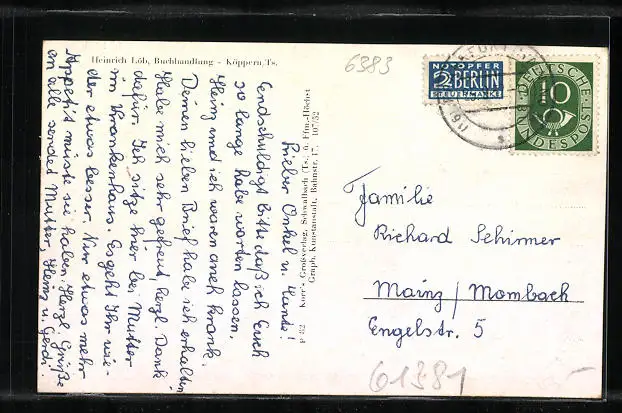 Heinrich Löb, Buchhandlung - Köppern/Ts.
6383
NOTOPFER
2 BERLIN
STEUERMARKE
DEUTSCHE
BUNDESPOST
10
Lieber Onkel u. Tante!
Endschuldigt bitte daß ich Euch
so lange habe warten lassen,
Heinz und ich waren auch krank.
Deinen lieben Brief habe ich erhalten
Habe mich sehr gefreut, herzl. Dank
dafür. Ich sitze hier bei Mutter
im Krankenhaus. Es geht Ihr wie-
der etwas besser. Nur etwas mehr
Appetit müsste sie haben. Herzl. Grüße
an alle sendet Mutter, Heinz u. Gerdi.
Kurt's Großverlag, Schwalbach (Ts.) ü. Ffm.-Höchst
Graph. Kunstanstalt, Bahnstr. 17, 107/32
Familie
Richard Schirmer
Mainz / Mombach
Engelstr. 5
61381